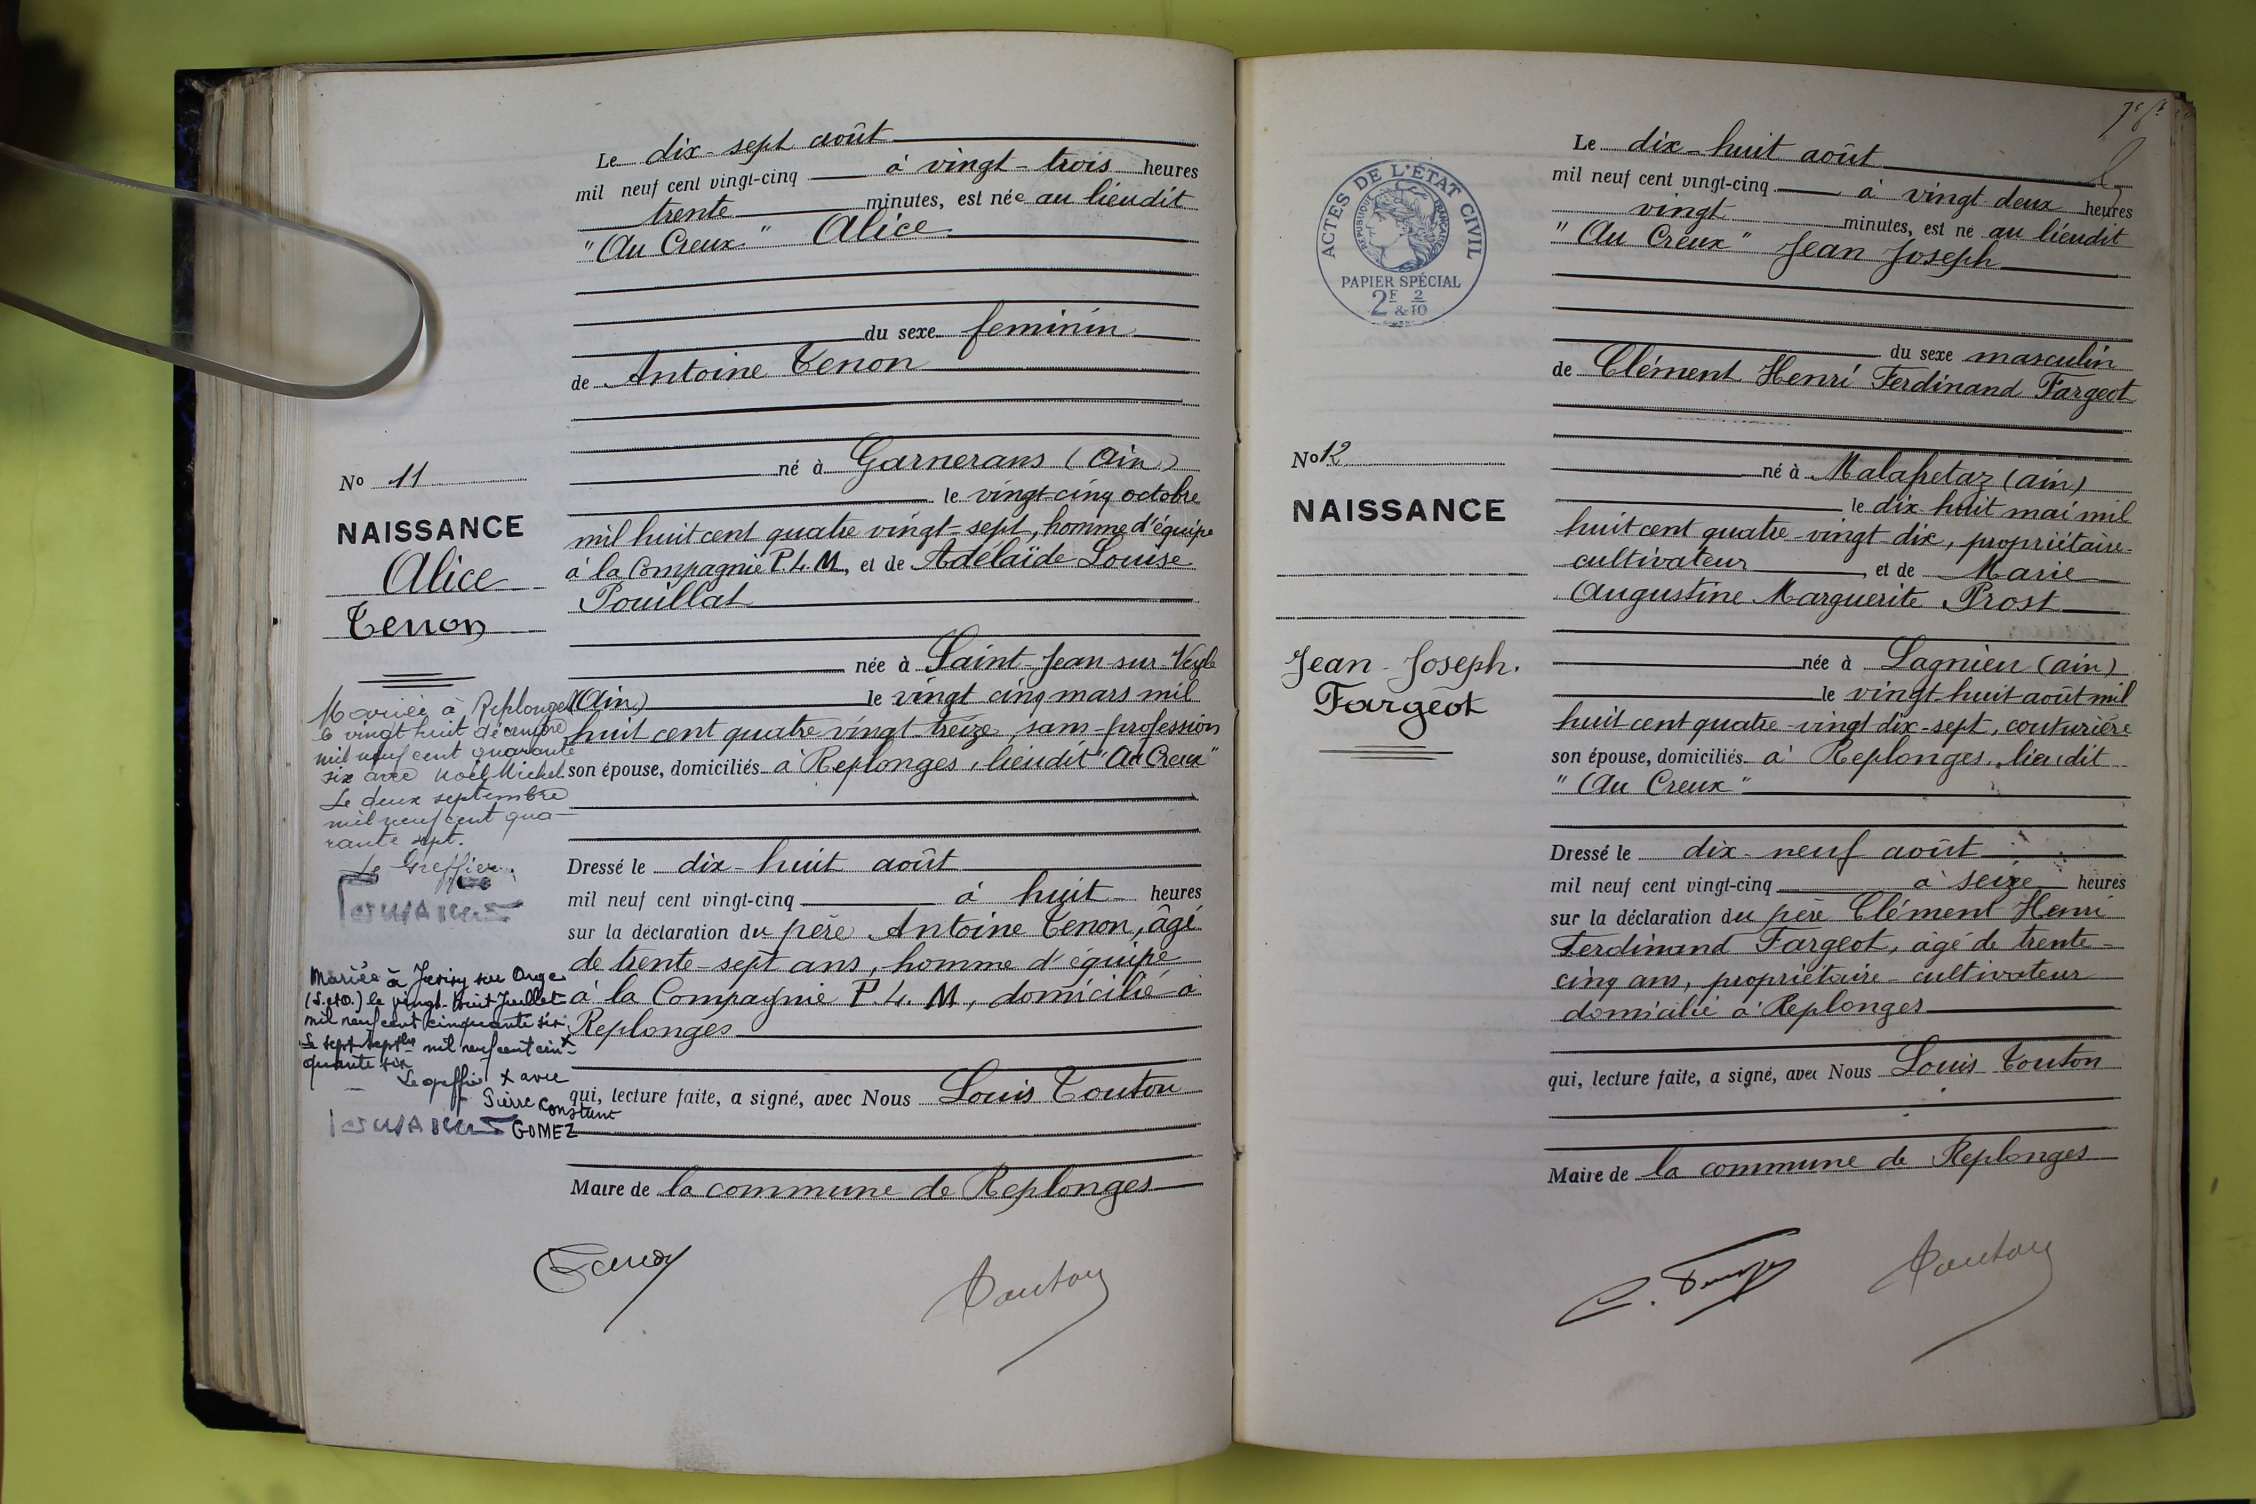 Le dix-sept août
mil neuf cent vingt-cinq à vingt-trois heures
trente minutes, est née au lieudit
"Au Creux" Alice
du sexe feminin
de Antoine Tenon
né à Garnerans (Ain)
le vingt-cinq octobre
mil huit cent quatre vingt-sept, homme d'équipe
à la Compagnie P.L.M., et de Adelaïde Louise
Pouillat
née à Saint-Jean-sur-Veyle
(Ain) le vingt cinq mars mil
huit cent quatre vingt-treize, sans-profession
son épouse, domiciliés à Replonges, lieudit "Au Creux"
Dressé le dix-huit août
mil neuf cent vingt-cinq à huit heures
sur la déclaration du père Antoine Tenon, âgé
de trente-sept ans, homme d'équipe
à la Compagnie P.L.M., domicilié à
Replonges
qui, lecture faite, a signé, avec Nous Louis Touton
Maire de la commune de Replonges
Touton
No 11
NAISSANCE
Alice
Tenon
Mariée à Replonges
le vingt huit décembre
mil neuf cent quarante
six avec Noël Michel
Le deux septembre
mil neuf cent qua-
rante sept.
Le Greffier.
Mariée à Juvisy sur Orge
(S.etO.) le vingt-huit Juillet
mil neuf cent cinquante six
Le sept septbre mil neuf cent cin-x
quante six
Le greffier x avec
Pierre Constant
GOMEZ
ACTES DE L'ÉTAT CIVIL
RÉPUBLIQUE FRANÇAISE
PAPIER SPÉCIAL
2F & 2/10
No 12
NAISSANCE
Jean-Joseph.
Fargeot
Le dix-huit août
mil neuf cent vingt-cinq à vingt deux heures
vingt minutes, est né au lieudit
"Au Creux" Jean Joseph
du sexe masculin
de Clément Henri Ferdinand Fargeot
né à Malapetaz (ain)
le dix-huit mai mil
huit cent quatre-vingt-dix, propriétaire-
cultivateur, et de Marie
Augustine Marguerite Prost
née à Lagnieu (ain)
le vingt-huit août mil
huit cent quatre-vingt dix-sept, couturière
son épouse, domiciliés à Replonges, lieudit
"Au Creux"
Dressé le dix-neuf août
mil neuf cent vingt-cinq à seize heures
sur la déclaration du père Clément Henri
Ferdinand Fargeot, âgé de trente-
cinq ans, propriétaire-cultivateur
domicilié à Replonges
qui, lecture faite, a signé, avec Nous Louis Touton
Maire de la commune de Replonges
Touton